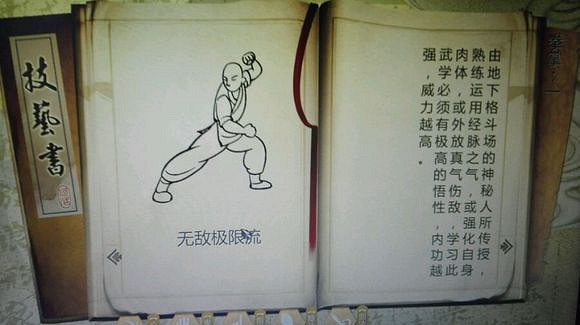 技藝書
无敌极限流
由地下格斗场的神秘人所传授，
熟练运用经脉之气，或强化自身
肉体，或外放真气伤敌，学习此
武学必须有极高的悟性，内功越
强，威力越高。